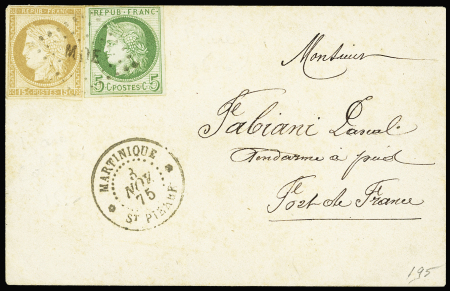 REPUB. FRANC.
REPUB. FRANC.
MQE
15 C. POSTES 15 C.
5 C. POSTES C. 5
Monsieur
Fabiani
Gendarme à pied
Fort de France
MARTINIQUE
3
NOV
75
ST PIERRE
195